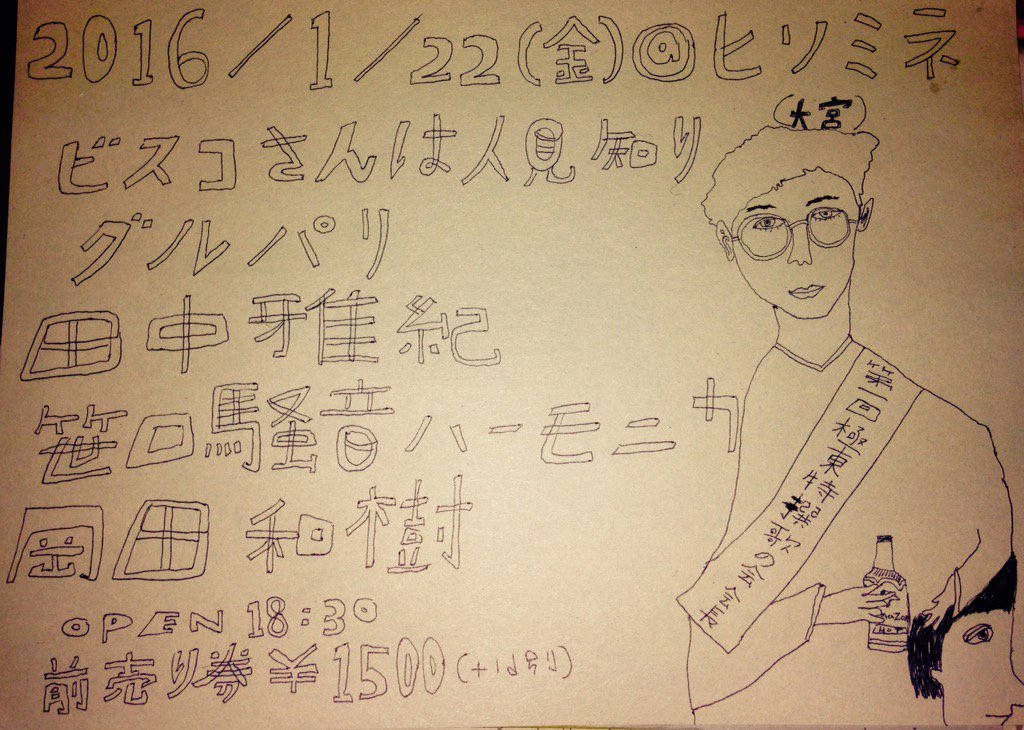 2016/1/22(金)@ヒソミネ
(大宮)
ビスコさんは人見知り
グルパリ
田中雅紀
笹口騒音ハーモニカ
岡田和樹
OPEN 18:30
前売り券￥1500(+1d別り)
第一回極東特撰歌の会会長
HOT